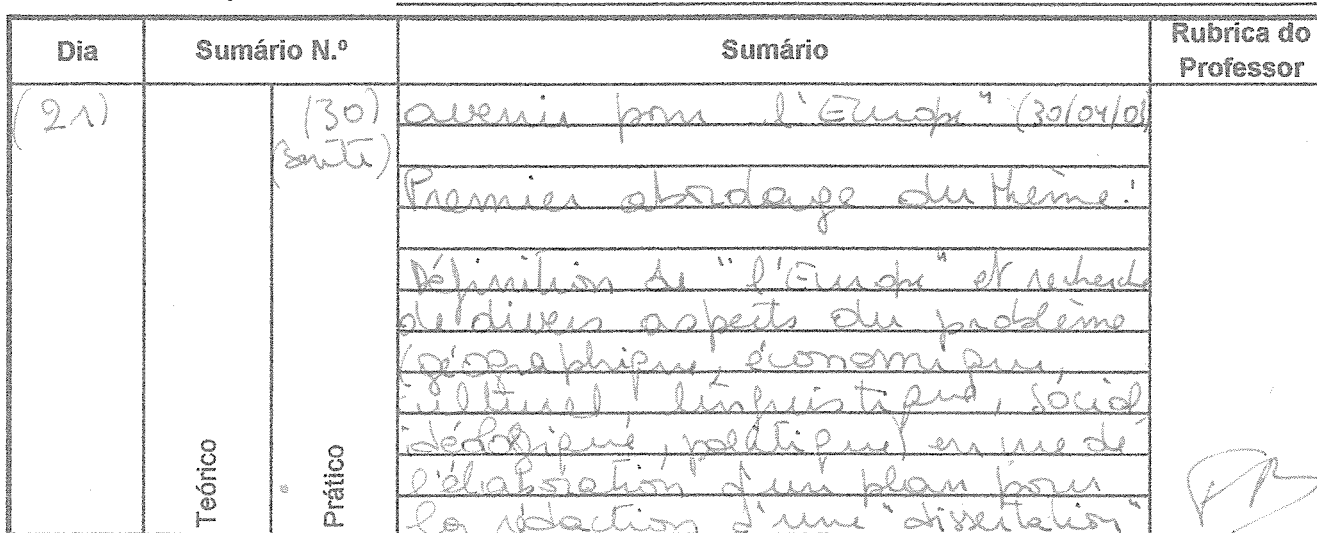 Dia Sumário N.º Sumário Rubrica do Professor
(21) (30) avenir pour l'Europe" (30/04/0
Premier abordage du thème:
Définition de "l'Europe" et recherche
de divers aspects du problème
(géographique, économique,
culturel linguistique, social
idéologique, politique) en vue de
l'élaboration d'un plan pour
la rédaction d'une "dissertation"
Teórico
Prático